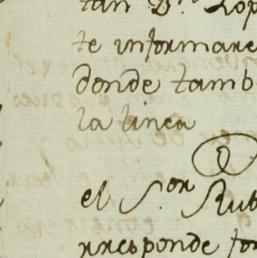 tan Dn. Rop
te informare
donde tamb
la linea
el S.or Rub
rresponde for